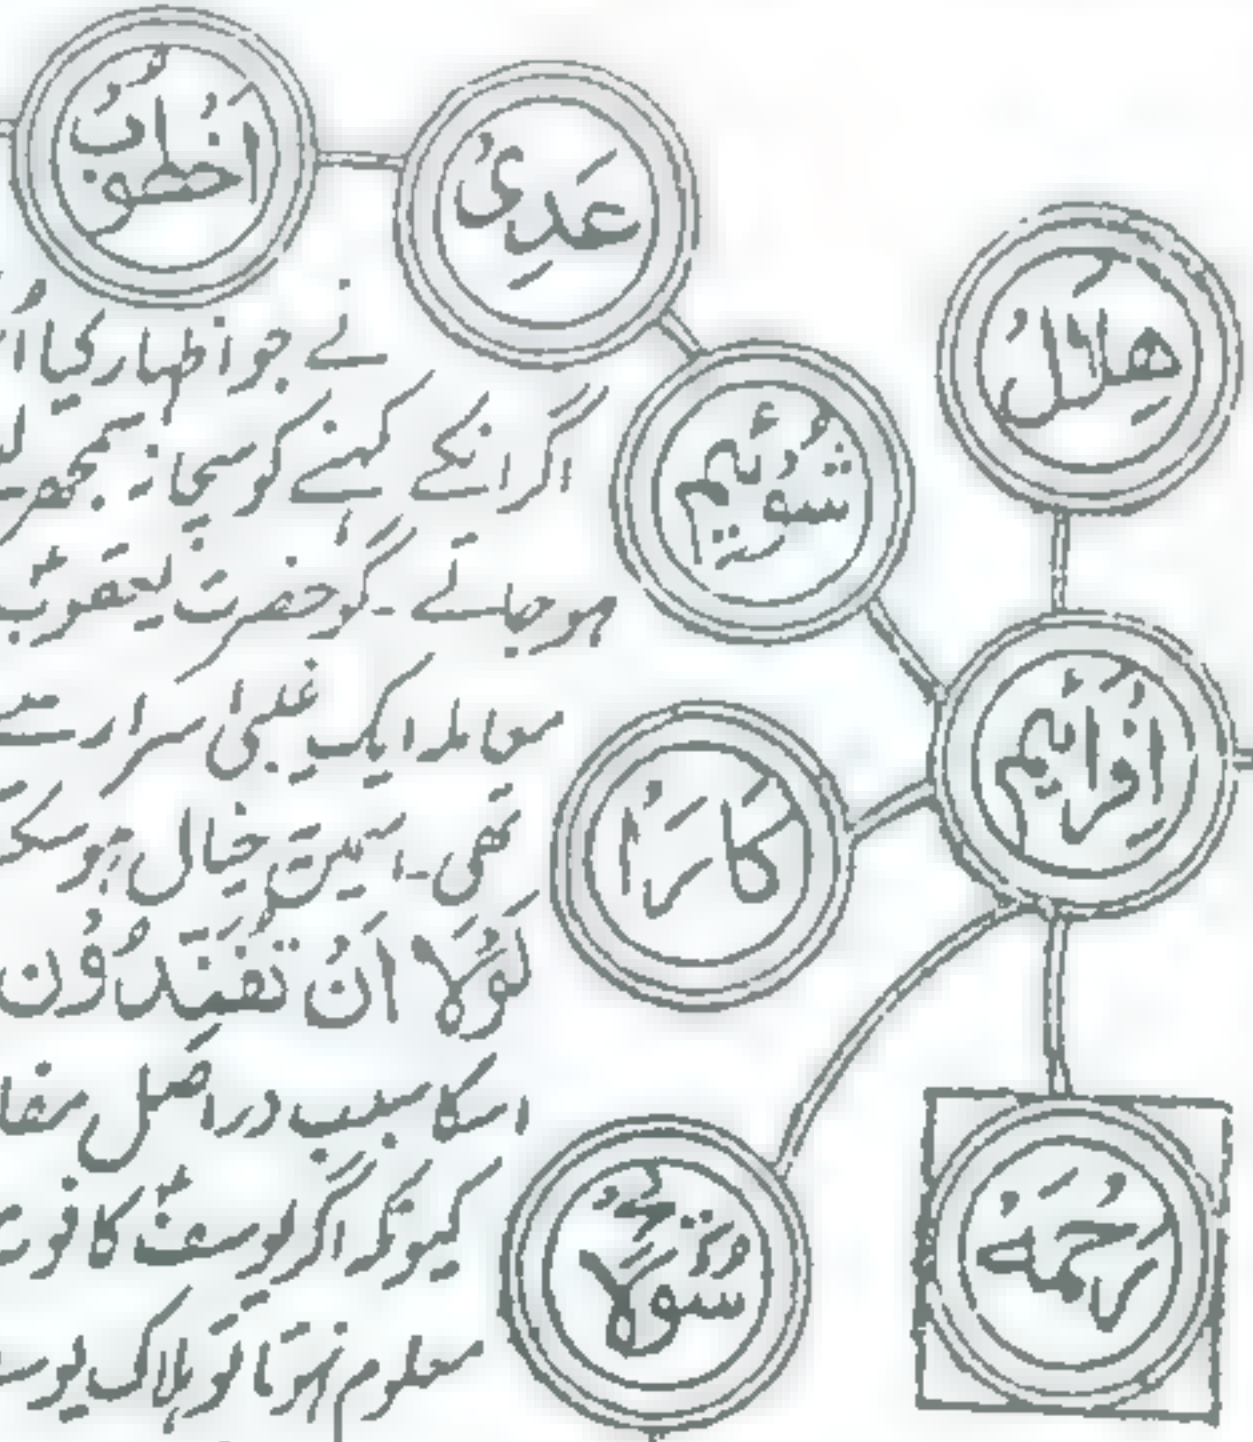 اَخْطُوْبٌ
عَدِیٌ
هِلَالٌ
شُوْئِیْم
اِفْرَائِیْم
کَارَا
رَحْمَہ
نے جو اظہار کیا
اگر انکے کہنے کو سچا نہ سمجھ
ہو جاتے ۔ گو حضرت یعقوبؑ
معاملہ ایک غیبی اسرار سے
تھی ۔ اسمیں خیال ہو سکتا
لَوْلَا اَنْ تُفَنِّدُوْنِ
اسکا سبب دراصل
کیونکہ اگر یوسفؑ کا فوت
معلوم نہوتا تو ہلاک